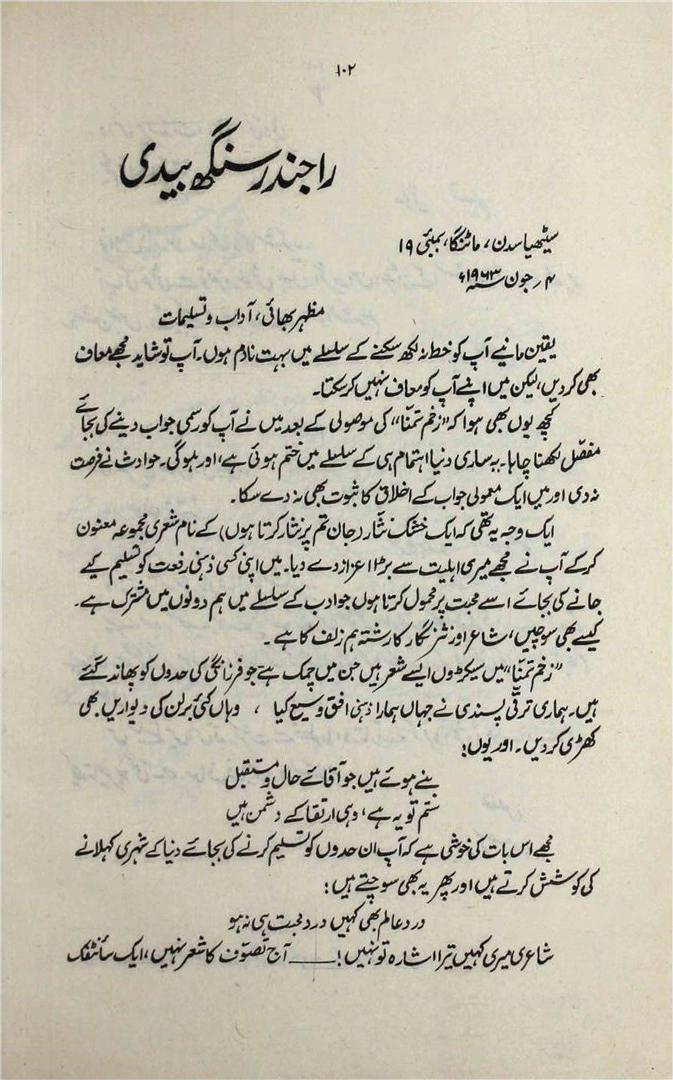 ۱۰۲
راجندر سنگھ بیدی
سیٹھیا سدن، ماٹنگا، بمبئی ۱۹
۴ر جون ۱۹۶۳ء
مظہر بھائی، آداب و تسلیمات
یقین مانیے آپ کو خط نہ لکھ سکنے کے سلسلے میں بہت نادم ہوں۔ آپ تو شاید مجھے معاف
بھی کردیں، لیکن میں اپنے آپ کو معاف نہیں کرسکتا۔
کچھ یوں بھی ہوا کہ ”زخم تمنّا“ کی موصولی کے بعد میں نے آپ کو رسمی جواب دینے کی بجائے
مفصّل لکھنا چاہا۔ یہ ساری دنیا اہتمام ہی کے سلسلے میں ختم ہوئی ہے، اور ہوگی۔ حوادث نے فرصت
نہ دی اور میں ایک معمولی جواب کے اخلاق کا ثبوت بھی نہ دے سکا۔
ایک وجہ یہ تھی کہ ایک خشک نثّار (جان تم پر نثار کرتا ہوں) کے نام شعری مجموعہ معنون
کرکے آپ نے مجھے میری اہلیت سے بڑا اعزاز دے دیا۔ میں اپنی کسی ذہنی رفعت کو تسلیم کیے
جانے کی بجائے اسے محبت پر محمول کرتا ہوں جو ادب کے سلسلے میں ہم دونوں میں مشترک ہے۔
کیسے بھی سوچیں، شاعر اور نثر نگار کا رشتہ ہم زلف کا ہے۔
”زخم تمنّا“ میں سیکڑوں ایسے شعر ہیں جن میں چمک ہے جو فرزانگی کی حدوں کو پھاند گئے
ہیں۔ ہماری ترقی پسندی نے جہاں ہمارا ذہنی افق وسیع کیا، وہاں کئی برلن کی دیواریں بھی
کھڑی کردیں۔ اور یوں:
بنے ہوئے ہیں جو آقائے حال و مستقبل
ستم تو یہ ہے، وہی ارتقا کے دشمن ہیں
مجھے اس بات کی خوشی ہے کہ آپ ان حدوں کو تسلیم کرنے کی بجائے دنیا کے شہری کہلانے
کی کوشش کرتے ہیں اور پھر یہ بھی سوچتے ہیں:
درد عالم بھی کہیں درد محبت ہی نہ ہو
شاعری میری کہیں تیرا اشارہ تو نہیں! ــــــ آج تصوّف کا شعر نہیں، ایک سائنٹفک